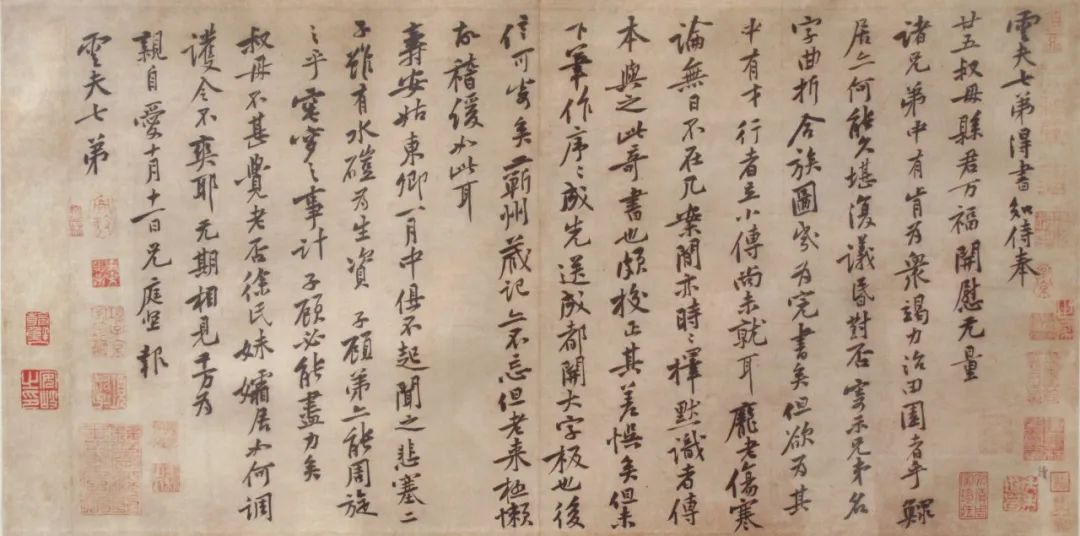 雲夫七弟得書知侍奉
廿五叔母縣君万福開慰无量
諸兄弟中有肯為衆竭力治田園者乎鰥
居亦何能久堪復議昏對否寄示兄弟名
字曲折合族圖為完書矣但欲為其
中有才行者立小傳尚未就耳龐老傷寒
論無日不在几案間亦時〻擇默識者傳
本與之此奇書也頗校正其差悞矣但未
下筆作序〻成先送成都開大字板也後
信可寄矣蘄州藏記亦不忘但老来極懶
故稽緩如此耳
壽安姑東卿一月中俱不起聞之悲塞二
子雖有水磑為生資子顧弟亦能周旋
之乎窀穸之事計子顧必能盡力矣
叔母不甚覺老否徐氏妹孀居如何調
護令不爽耶无期相見千万為
親自愛十月十一日兄庭堅報
雲夫七弟